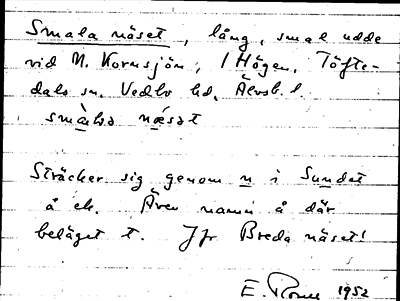 Smala näset, lång, smal udde
vid N. Kornsjön, i Högen, Töfte-
dals sn. Vedbo hd, Älvsb. l.
smàlɷ næsət
Sträcker sig genom n i Sundet
å ek. Även namn å där
beläget t. Jfr Breda näset!
E. 1952